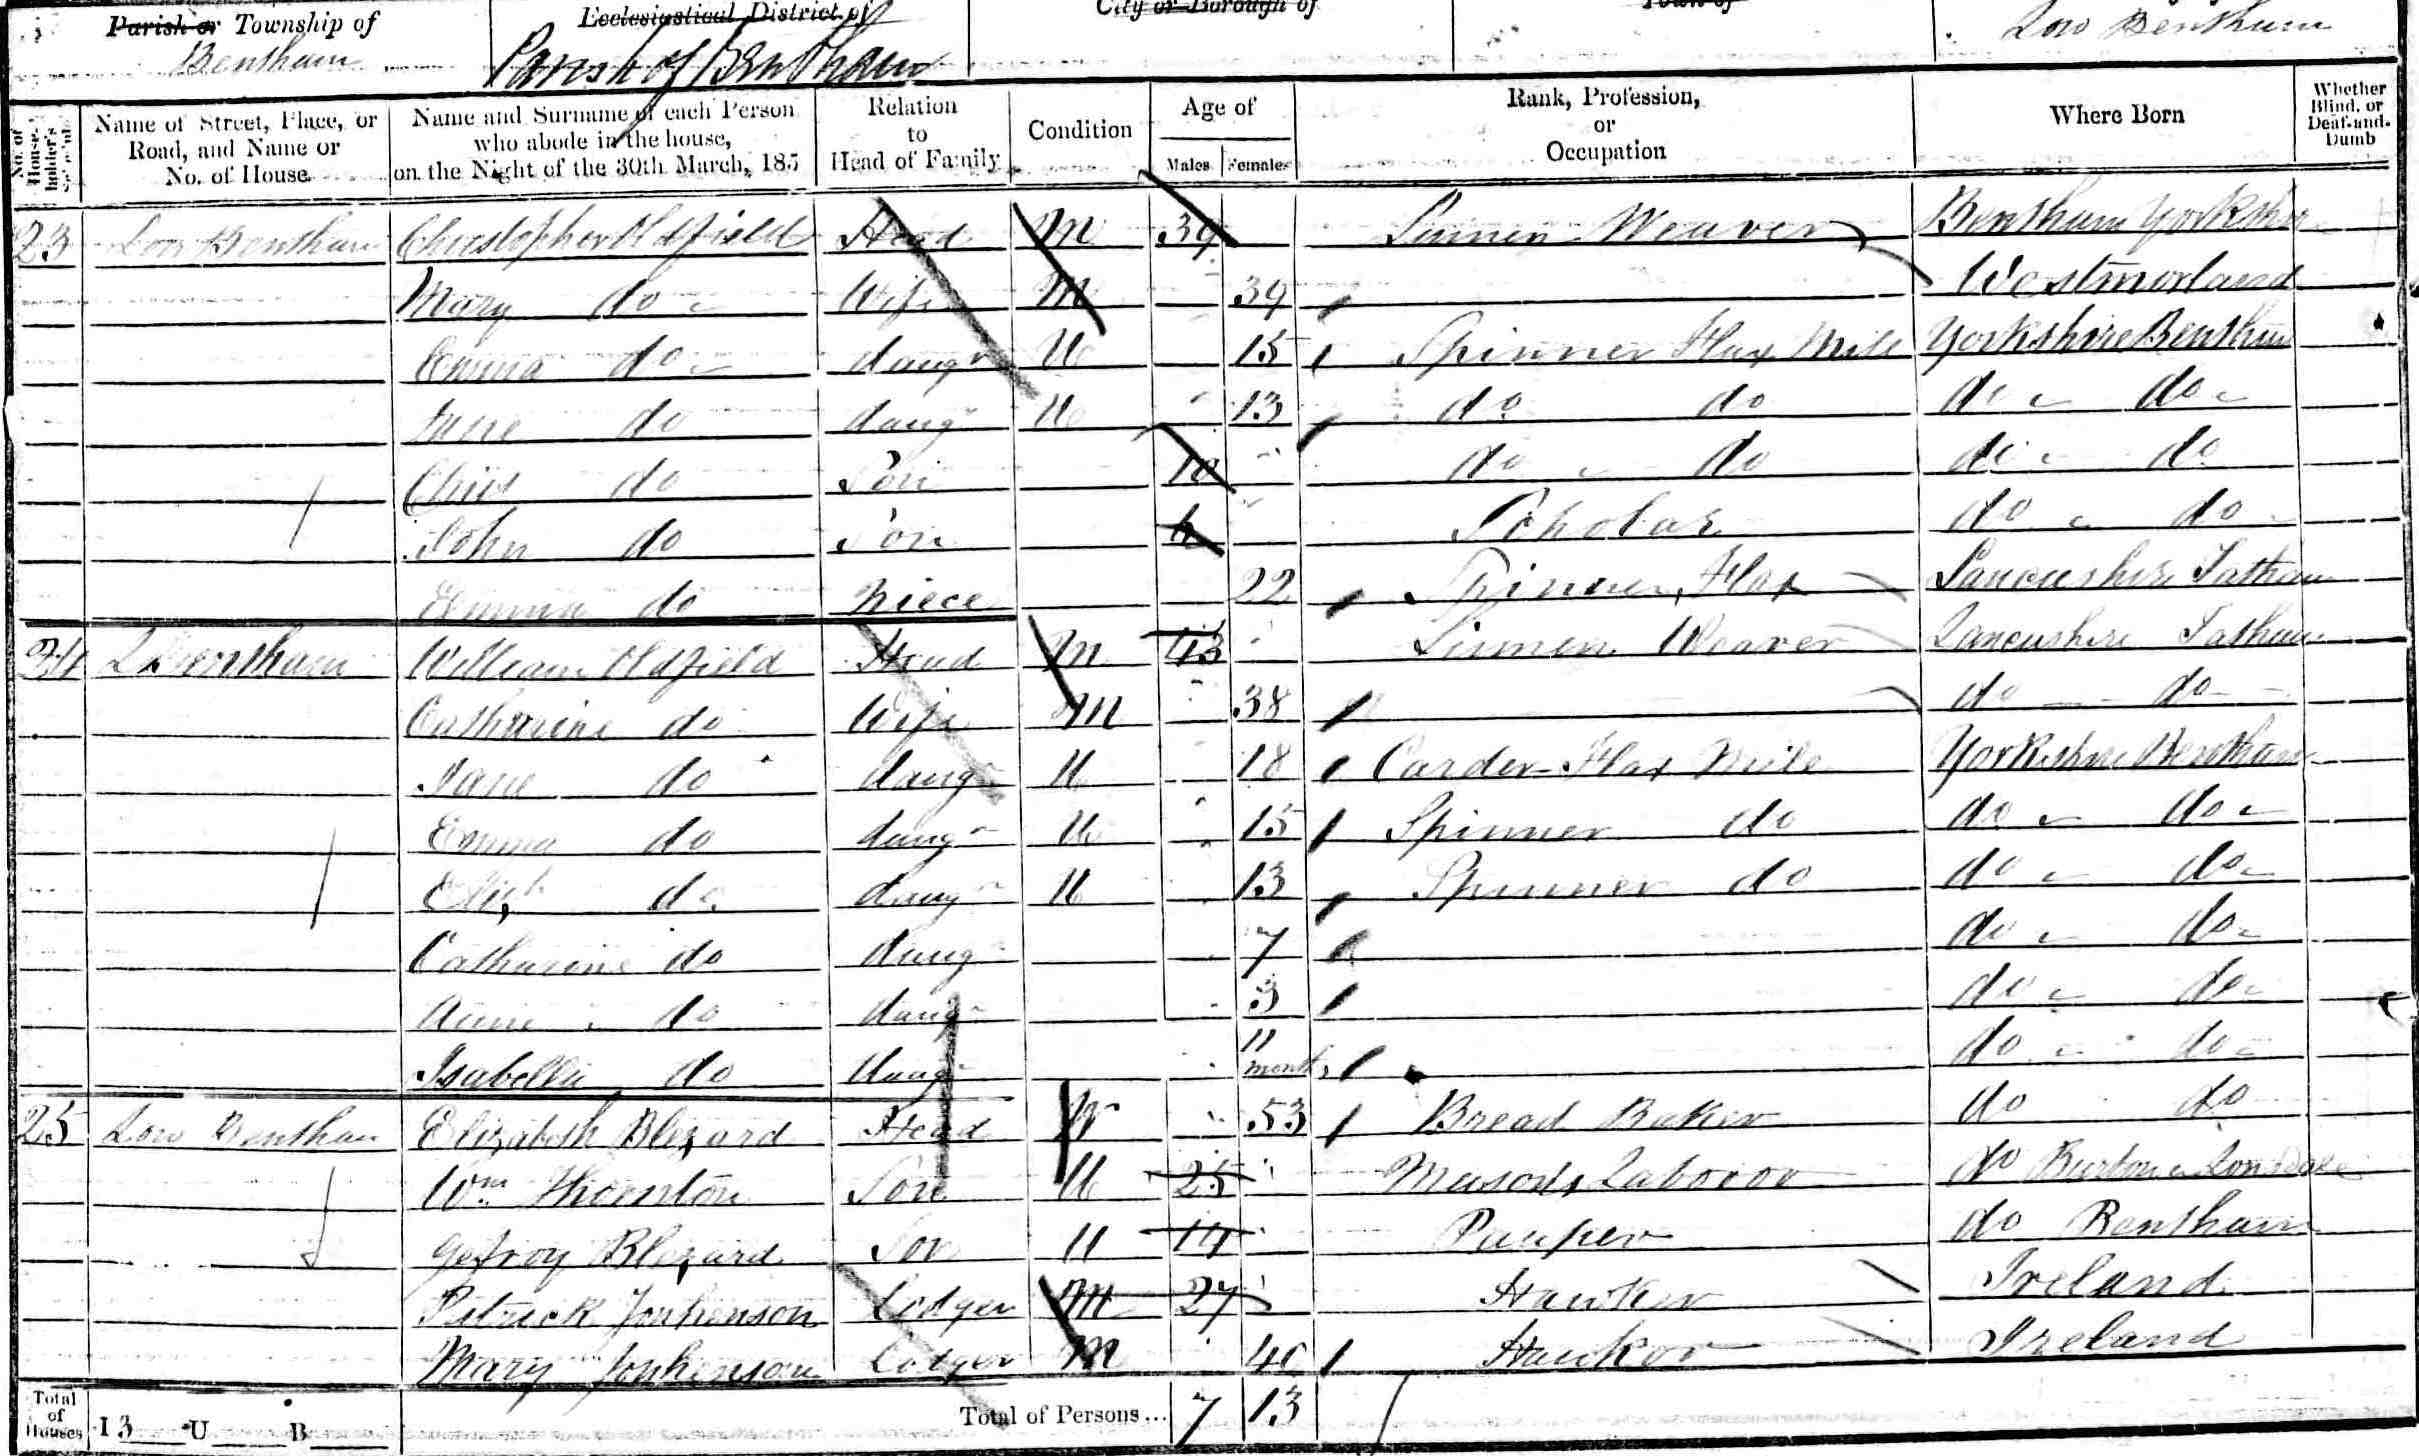 Parish or Township of Ecclesiastical District of City or Borough of Town of
Bentham Parish of Bentham Low Bentham
No. of House-holder's Schedule Name of Street, Place, or Road, and Name or No. of House Name and Surname of each Person who abode in the house, on the Night of the 30th March, 185 Relation to Head of Family Condition Age of Males Females Rank, Profession, or Occupation Where Born Whether Blind, or Deaf-and-Dumb
23 Low Bentham Christopher Oldfield Head M 39 Linnen Weaver Bentham Yorkshir
Mary do Wife M 39 Westmorland
Emma do daugr U 15 Spinner Flax Mill Yorkshire Bentham
Jane do daugr U 13 do do do do
Chrisr do Son 10 do do do do
John do Son Scholar do do
Emma do Niece 22 Spinner Flax Lancashire Tatham
24 L Bentham William Oldfield Head M 43 Linnen Weaver Lancashire Tatham
Catharine do Wife M 38 do do
Jane do daugr U 18 Carder Flax Mill Yorkshire Bentham
Emma do daugr U 15 Spinner do do do
Elizh do daugr U 13 Spinner do do do
Catharine do daugr 7 do do
Anne do daugr 3 do do
Isabella do daugr 11 months do do
25 Low Bentham Elizabeth Blezard Head W 53 Bread Baker do do
Wm Thornton Son U 25 Masons Labooor do Burton Lonsdale
Gefroy Blezard Son U 14 Pauper do Bentham
Patrick Lodger M 27 Hawker Ireland
Mary Lodger M 40 Hawker Ireland
Total of Houses 13 U B Total of Persons... 7 13